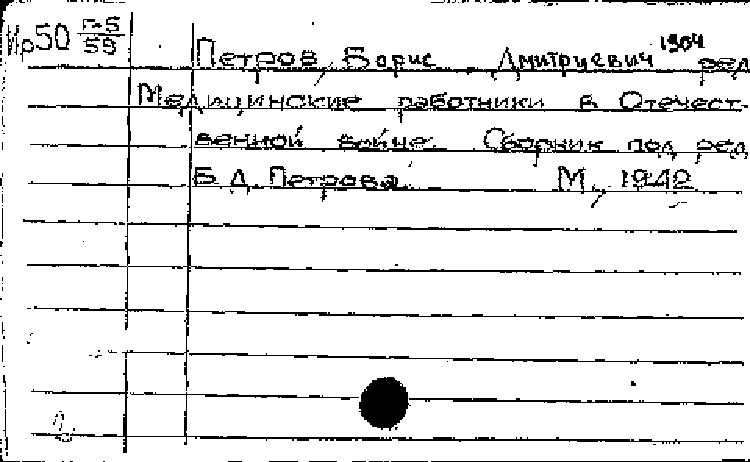 Ир50 П-5/59
Петров, Борис Дмитриевич 1904 ред
Медицинские работники в Отечест-
венной войне. Сборник под ред
Б.Д. Петрова. М., 1942